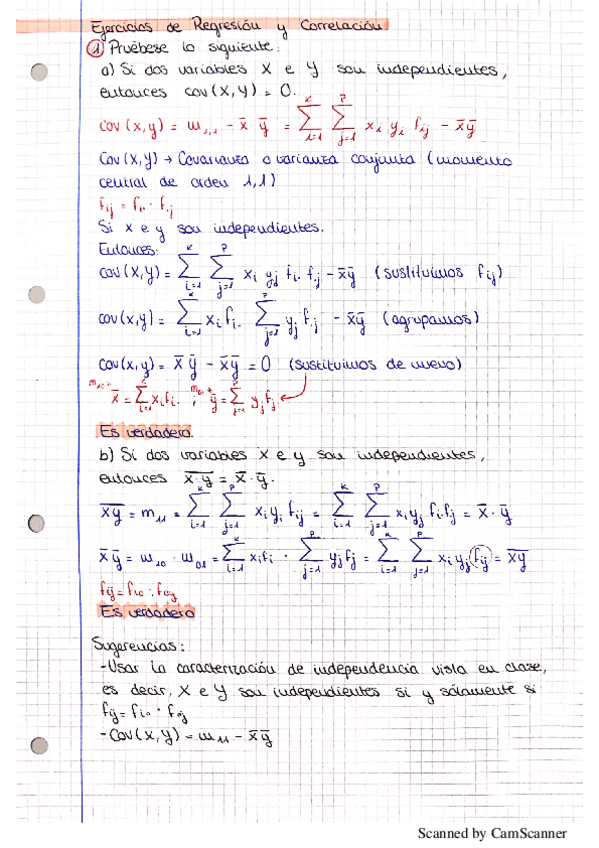 Ejercicios de Regresión y Correlación
① Pruébese lo siguiente:
a) Si dos variables X e Y son independientes,
entonces cov(X,Y) = 0.
cov(x,y) = m₁,₁ - x̄ ȳ = Σᵢ₌₁ᵏ Σⱼ₌₁ᵖ xᵢ yⱼ fᵢⱼ - x̄ȳ
Cov(X,Y) → Covarianza o varianza conjunta (momento
central de orden 1,1)
fᵢⱼ = fᵢ. · f.ⱼ
Si x e y son independientes.
Entonces:
cov(x,y) = Σᵢ₌₁ᵏ Σⱼ₌₁ᵖ xᵢ yⱼ fᵢ. f.ⱼ - x̄ȳ (sustituimos fᵢⱼ)
cov(x,y) = Σᵢ₌₁ᵏ xᵢ fᵢ. Σⱼ₌₁ᵖ yⱼ f.ⱼ - x̄ȳ (agrupamos)
cov(x,y) = x̄ ȳ - x̄ȳ = 0 (sustituimos de nuevo)
x̄ = Σᵢ₌₁ xᵢfᵢ. ; ȳ = Σⱼ₌₁ yⱼfⱼ
Es verdadero.
b) Si dos variables x e y son independientes,
entonces \overline{x·y} = x̄ · ȳ.
\overline{xy} = m₁₁ = Σᵢ₌₁ᵏ Σⱼ₌₁ᵖ xᵢ yᵢ fᵢⱼ = Σᵢ₌₁ᵏ Σⱼ₌₁ᵖ xᵢ yⱼ fᵢ. f.ⱼ = x̄ · ȳ
x̄ ȳ = m₁₀ · m₀₁ = Σᵢ₌₁ᵏ xᵢfᵢ · Σⱼ₌₁ᵖ yⱼfⱼ = Σᵢ₌₁ᵏ Σⱼ₌₁ᵖ xᵢ yⱼ fᵢⱼ = \overline{xy}
fᵢⱼ = fᵢ₀ · f₀ⱼ
Es verdadero
Sugerencias:
-Usar la caracterización de independencia vista en clase,
es decir, X e Y son independientes si y sólamente si
fᵢⱼ = fᵢ₀ · f₀ⱼ
- Cov(X,Y) = m₁₁ - x̄ȳ
Scanned by CamScanner